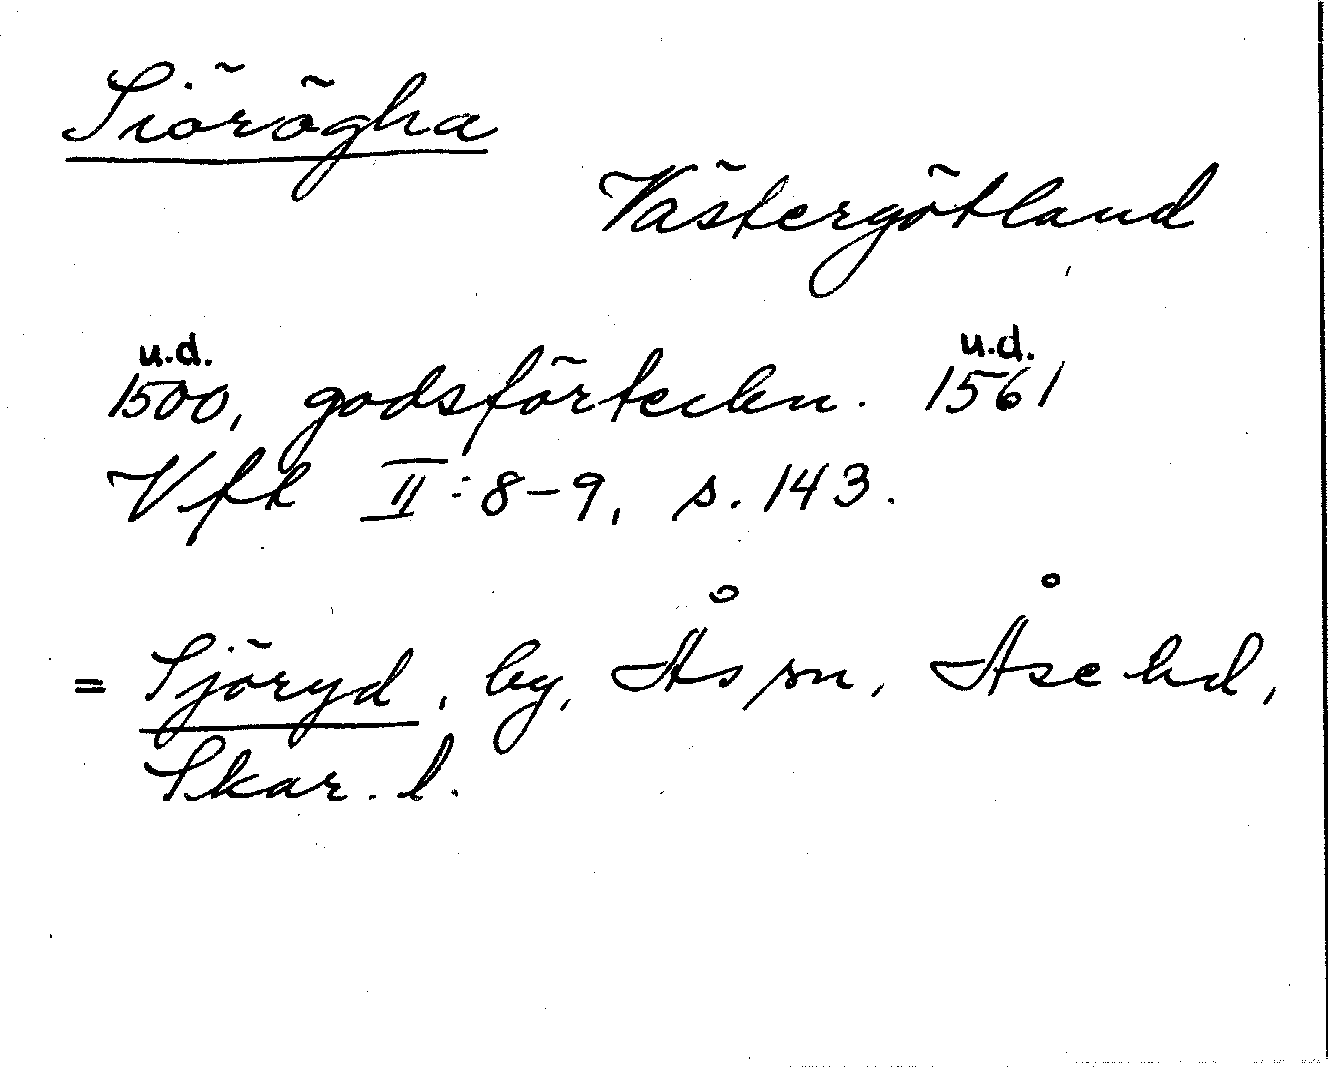 Siörögha
Västergötland
u.d. u.d.
1500, godsförteckn. 1561
Vfk II:8-9, s. 143.
= Sjöryd, by, Ås sn, Åse hd,
Skar. l.